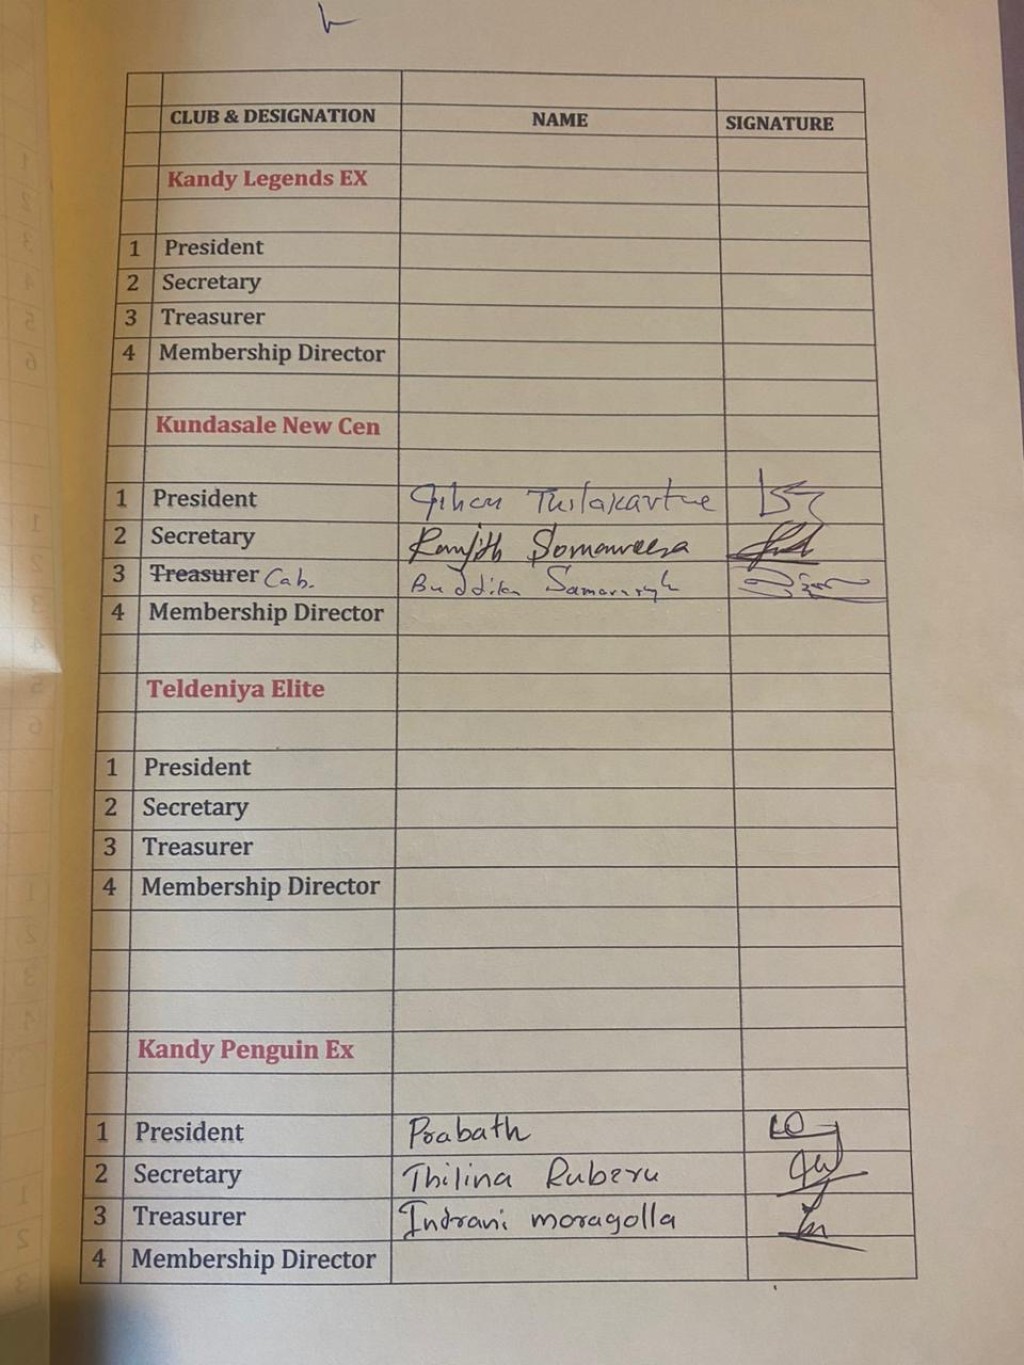 CLUB & DESIGNATION NAME SIGNATURE
Kandy Legends EX
1 President
2 Secretary
3 Treasurer
4 Membership Director
Kundasale New Cen
1 President Jihan Thilakartne
2 Secretary Ranjith Somaweera
3 Treasurer Cab. Buddika
4 Membership Director
Teldeniya Elite
1 President
2 Secretary
3 Treasurer
4 Membership Director
Kandy Penguin Ex
1 President Prabath
2 Secretary Thilina Ruberu
3 Treasurer Indrani moragolla
4 Membership Director